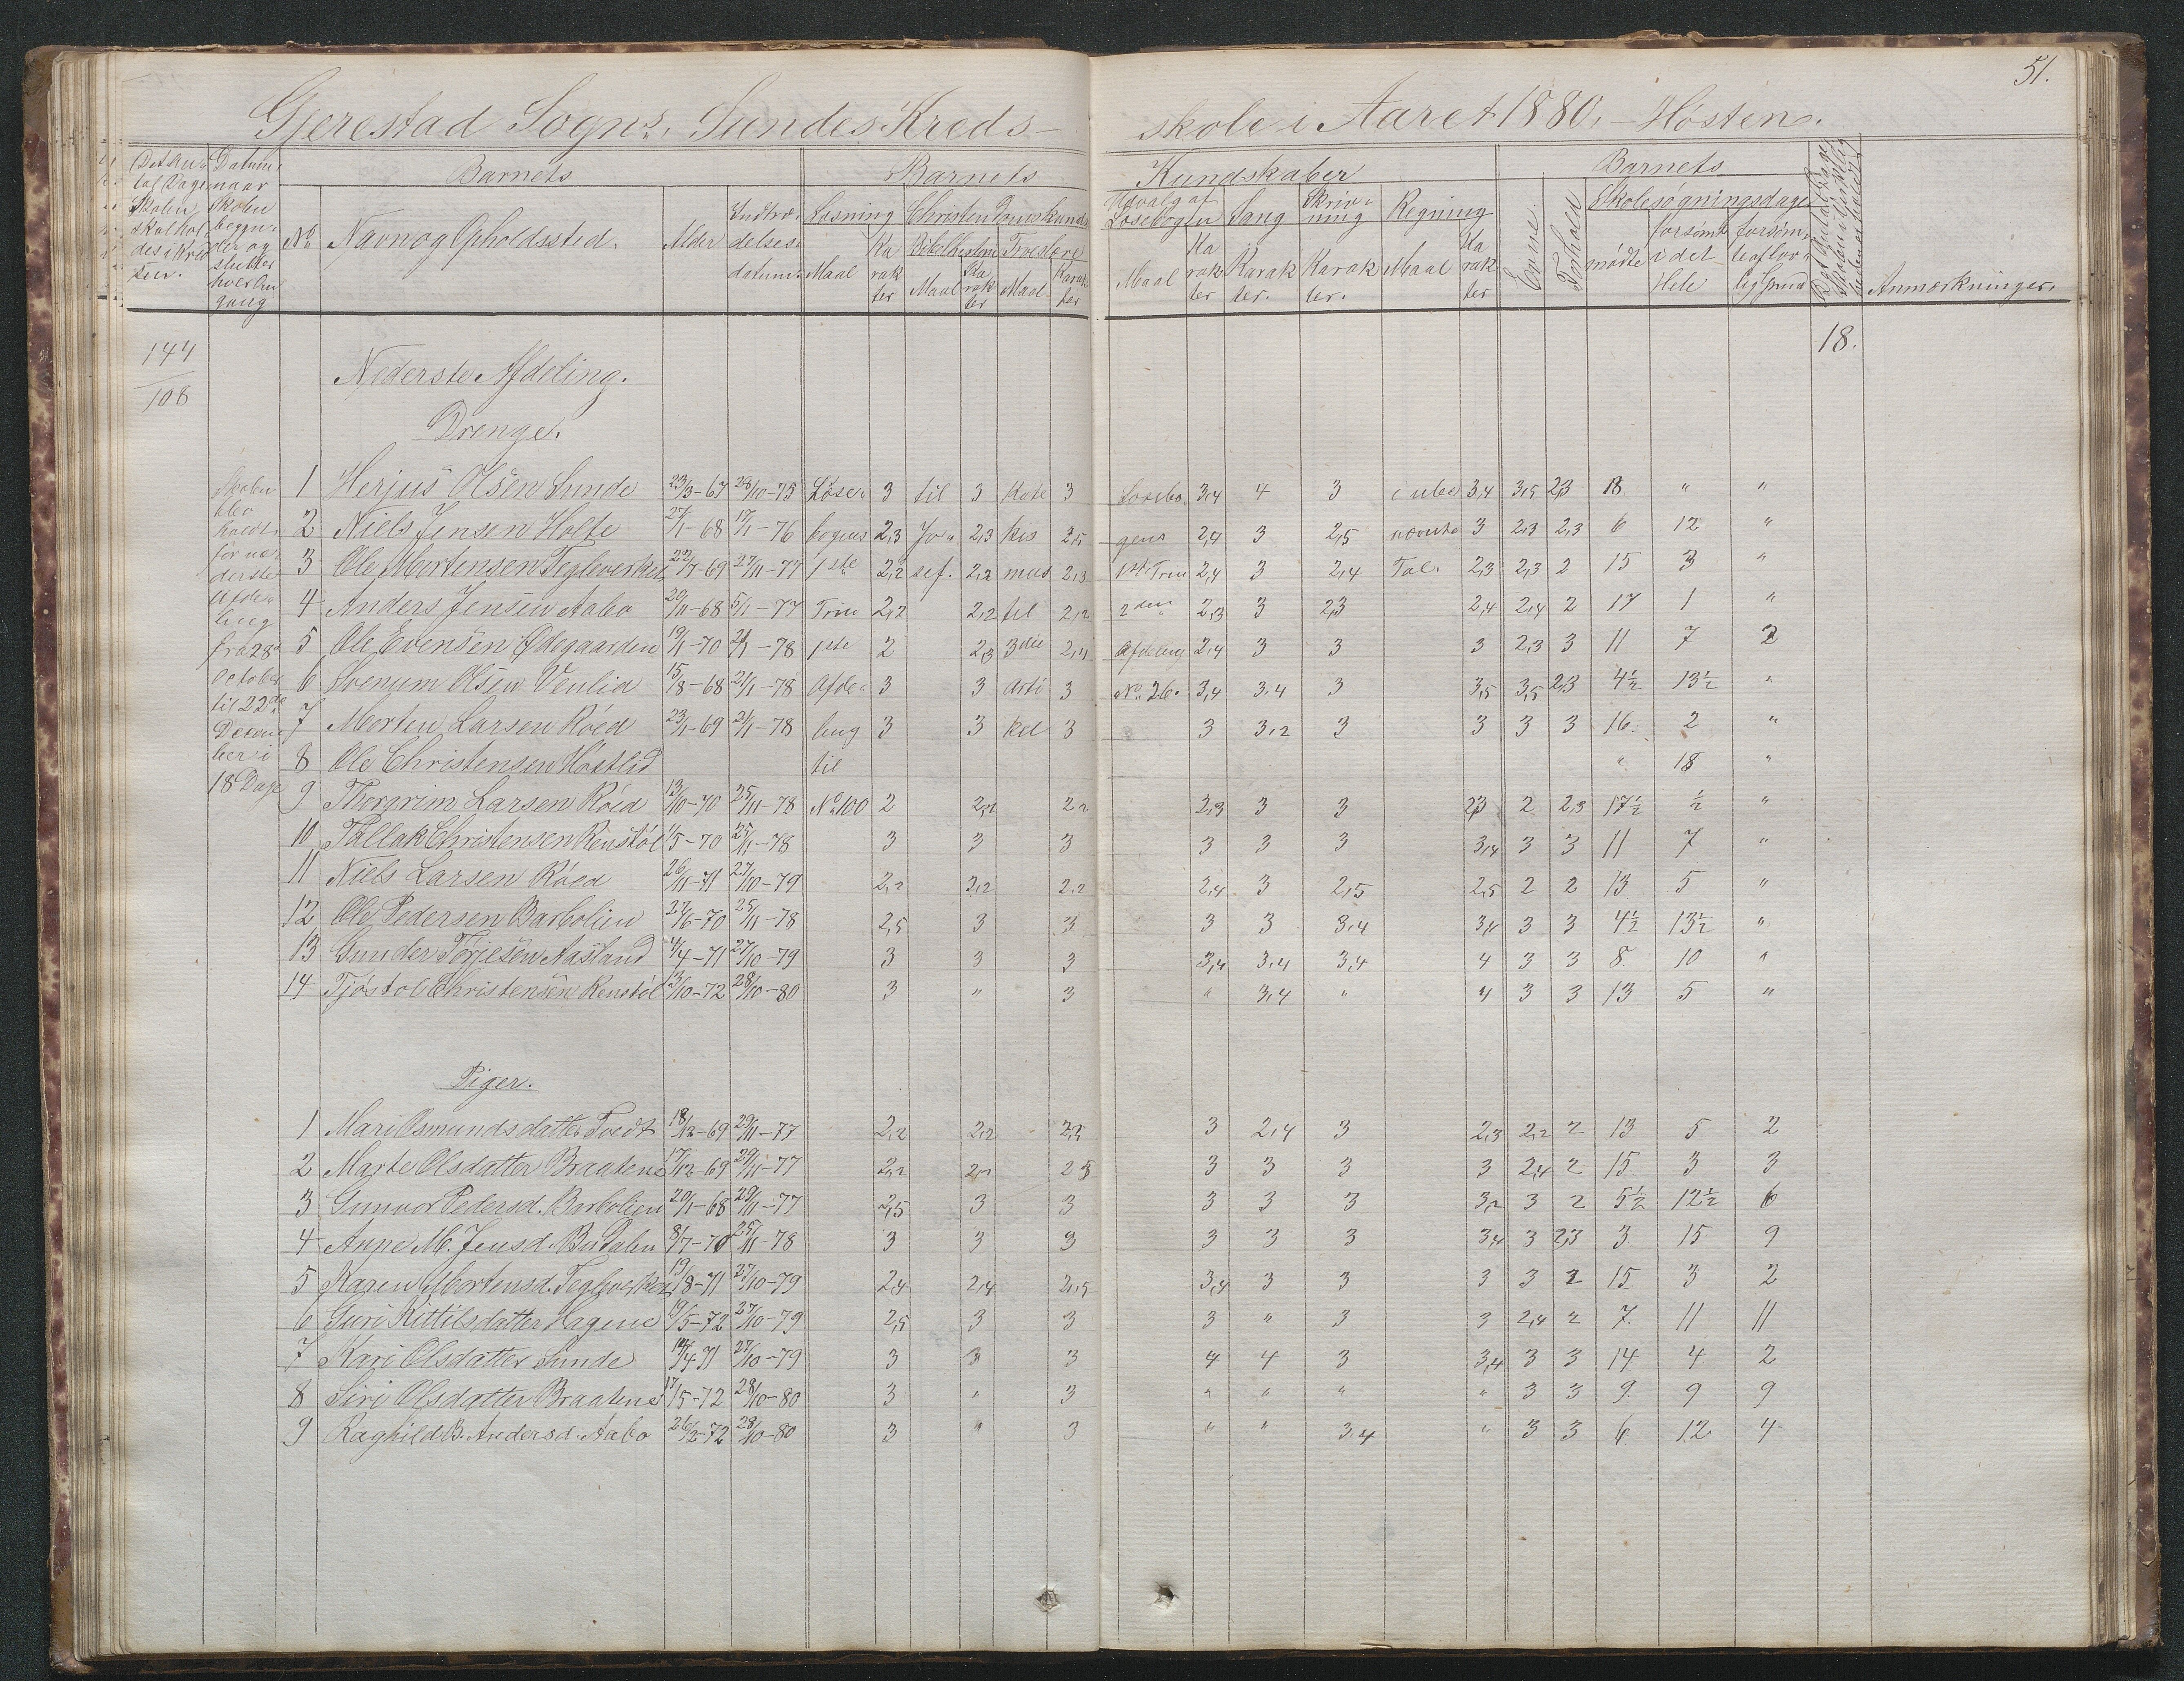 51.
Gjerestad Sogns, Sundes Kreds-
skole i Aaret 1880, - Høsten.
Det An-
tal Dage
Skolen
skal hol-
des i Kred-
sen.
Datum,
naar
Skolen
begyn-
der og
slutter
hver Om-
gang
Barnets
No
Navn og Opholdssted.
Alder
Indtræ-
delses-
datum.
Barnets
Læsning
Maal
Ka
rak
ter
Christendomskundskab
Bibelhistorie
Maal
Ka
rak
ter
Troeslære
Maal
Karak
ter
Kundskaber
Udvalg af
Læsebogen
Maal
Ka
rak
ter
Sang
Karak
ter.
Skriv-
ning
Karak
ter.
Regning
Maal
Ka
rak
ter
Barnets
Evne.
Forhold
Skolesøgningsdage
mødte
forsømte
i det
Hele
forsøm-
te af lov-
lig Grund
Anmærkninger.
144
108
18.
Nederste Afdeling.
Drenge.
Skolen
blev
holdt
for ne-
derste
Afde-
ling
fra 28de
October
til 22de
Decem-
ber i
18 Dage
1 Herjus Olsen Sunde 23/3-67 28/10-75 Læse- 3 til 3 Kate 3 Læsebo 3,4 4 3 i ube 3,4 3,5 2,3 18 " "
2 Niels Jensen Holte 27/1-68 17/1-76 bogens 2,3 Jo- 2,3 kis 2,5 gens 2,4 3 2,5 nævnte 3 2,3 2,3 6 12 "
3 Ole Mortensen Tegleverket 22/7-69 27/11-77 1ste 2,2 sef. 2,2 mus 2,3 1ste Trin 2,4 3 2,4 Tal. 2,3 2,3 2 15 3 "
4 Anders Jensen Aabo 20/11-68 5/1-77 Trin 2,2 2,2 til 2,2 2den 2,3 3 2,3 2,4 2,4 2 17 1 "
5 Ole Evensen Ødegaarden 19/1-70 21/1-78 1ste 2 2,3 3die 2,4 Afdeling 2,4 3 3 3 2,3 3 11 7 2
6 Svenum Olsen Venlid 15/8-68 21/1-78 Afde- 3 3 Arti 3 No 26. 3,4 3,4 3 3,5 3,5 2,3 4½ 13½ "
7 Morten Larsen Röed 23/1-69 21/1-78 ling 3 3 kel 3 3 3,2 3 3 3 3 16 2 "
8 Ole Christensen Höstlid til " 18 "
9 Thorgrim Larsen Röed 13/10-70 25/11-78 No 100 2 2,2 2,2 2,3 3 3 2,3 2 2,3 17½ ½ "
10 Tallak Christensen Renstöl 1/5-70 25/11-78 3 3 3 3 3 3 3,4 3 3 11 7 "
11 Niels Larsen Röed 26/11-71 27/10-79 2,2 2,2 2,2 2,4 3 2,5 2,5 2 2 13 5 "
12 Ole Pedersen Barbolien 27/6-70 25/11-78 2,5 3 3 3 3 3,4 3,4 3 3 4½ 13½ "
13 Gunder Terjesen Aasland 4/4-71 27/10-79 3 3 3 3,4 3,4 3,4 4 3 3 8 10 "
14 Tjöstol Christensen Renstöl 13/10-72 28/10-80 3 " 3 " 3,4 " 4 3 3 13 5 "
Piger.
1 Mari Osmundsdatter Tvedt 18/12-69 29/11-77 2,2 2,2 2,2 3 2,4 3 2,3 2,2 2 13 5 2
2 Marte Olsdatter Braatene 17/12-69 29/11-77 2,2 2,2 2,3 3 3 3 3 2,4 2 15 3 3
3 Gunvor Pedersd. Barbolien 20/1-68 29/11-77 2,5 3 3 3 3 3 3,2 3 2 5½ 12½ 6
4 Anne M. Jensd. Budalen 8/7-70 25/11-78 3 3 3 3 3 3 3,4 3 2,3 3 15 9
5 Karen Mortensd. Tegleverket 19/8-71 27/10-79 2,4 2,4 2,5 3,4 3 3 3 3 2 15 3 2
6 Guri Kittilsdatter Hagene 19/5-72 27/10-79 2,5 3 3 3 " 3 3 2,4 2 7 11 11
7 Kari Olsdatter Sunde 14/4 71 27/10-79 3 3 3 4 4 3 3,4 3 3 14 4 2
8 Siri Olsdatter Braatene 17/5-72 28/10-80 3 " 3 " " " " 3 3 9 9 9
9 Raghild B. Andersd. Aabo 26/2-72 28/10-80 3 " 3 " " 3,4 " 3 3 6 12 4